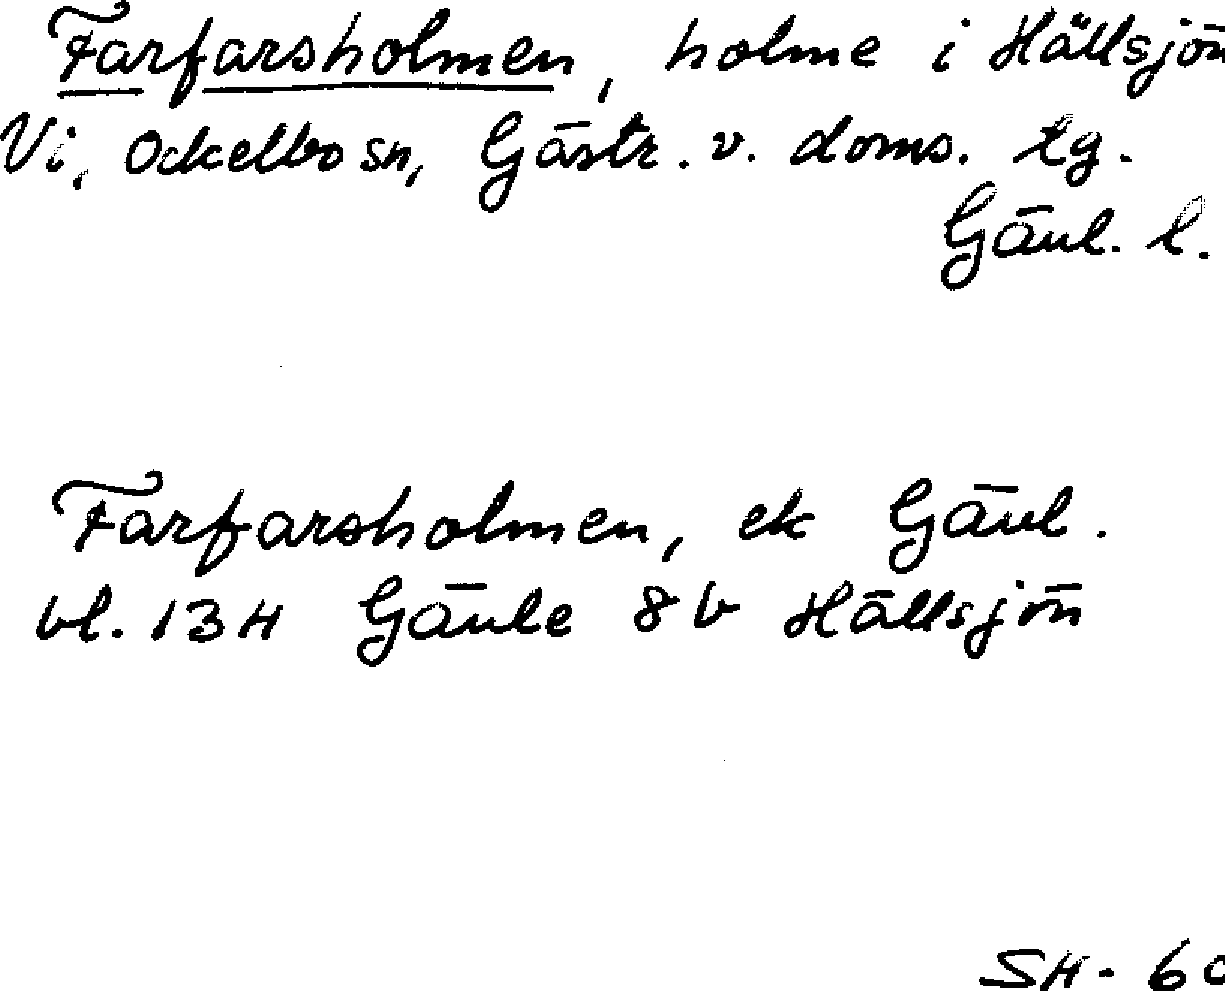 Farfarsholmen, holme i Hällsjön
Vi, Ockelbo sn, Gästr. v. doms. tg.
Gävl. l.
Farfarsholmen, ek Gävl.
bl. 13H Gävle 8b Hällsjön
SH - 60